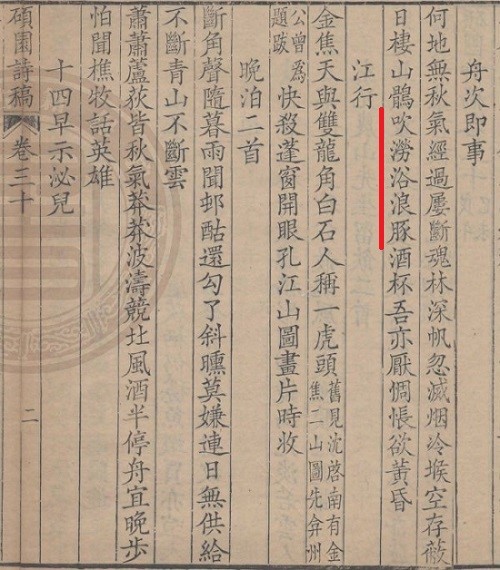 舟次即事
何地無秋氣經過屢斷魂林深帆忽滅烟冷堠空存蔽
日棲山鶻吹澇浴浪豚酒杯吾亦厭惆悵欲黄昏
江行
金焦天與雙龍角白石人稱一虎頭舊見沈啓南有金焦二山圖先弇州
公曾爲題跋快殺蓬窗開眼孔江山圖畫片時收
晚泊二首
斷角聲隨暮雨聞邨酤還勾了斜曛莫嫌連日無供給
不斷青山不斷雲
蕭蕭蘆荻皆秋氣莽莽波濤競壯風酒半停舟宜晚步
怕聞樵牧話英雄
十四早示泌兒
碩園詩稿 卷三十 二